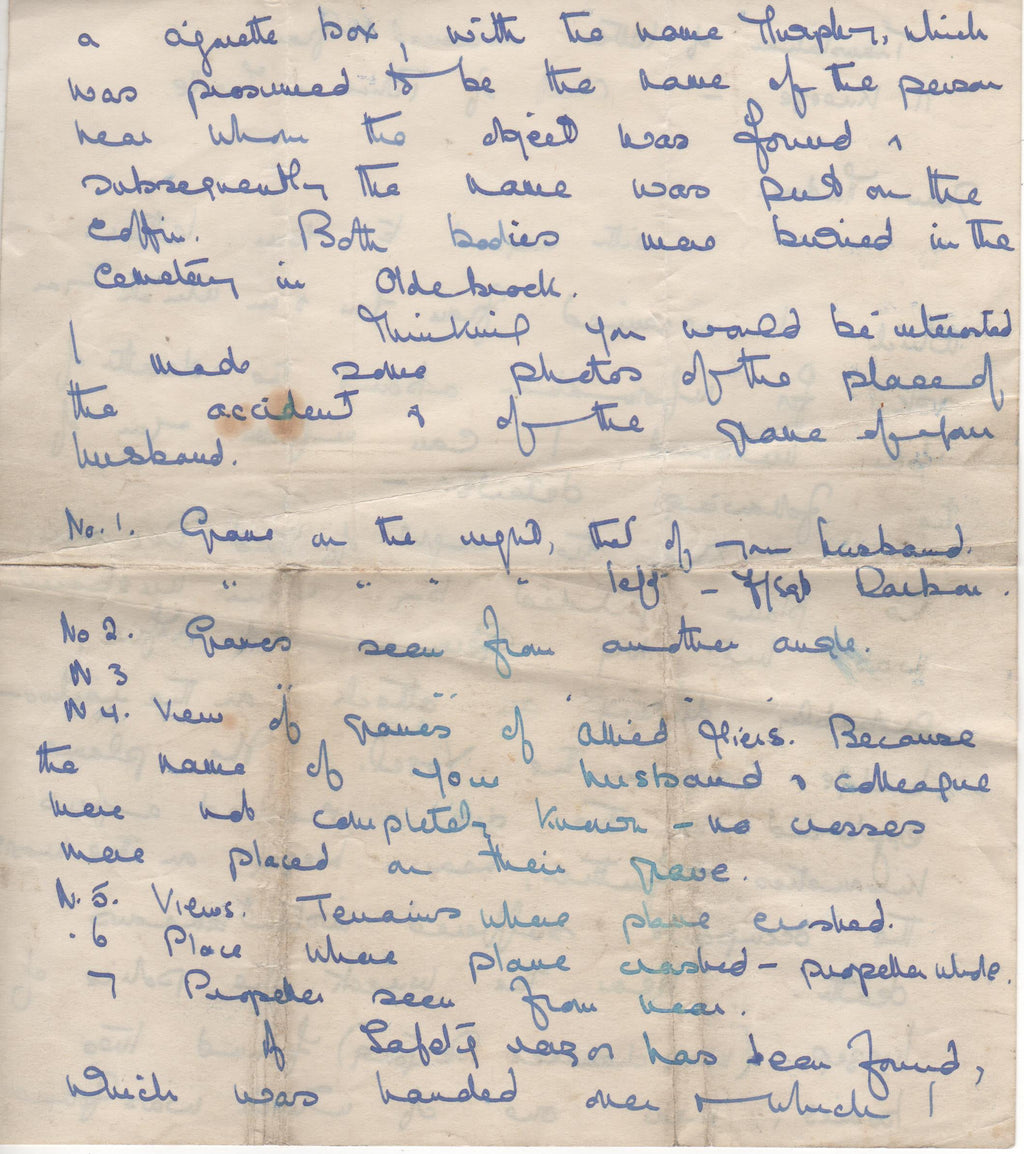 a cigarette box, with the name Thapley, which
was presumed to be the name of the person
near whom the object was found &
subsequently the name was put on the
coffin. Both bodies were buried in the
Cemetery in Oldebroek.
Thinking you would be interested
I made some photos of the place of
the accident & of the grave of your
husband.
No. 1. Grave on the right, that of your husband.
" " " " left - F/Sgt
No 2. Graves seen from another angle.
N 3 " " " "
N 4. View of graves of Allied fliers. Because
the name of your husband & colleague
were not completely known - no crosses
were placed on their grave.
N. 5. Views. Terrains where plane crashed.
. 6 Place where plane crashed - propeller whole.
7 Propeller seen from near.
A Safety razor has been found,
which was handed over & which I